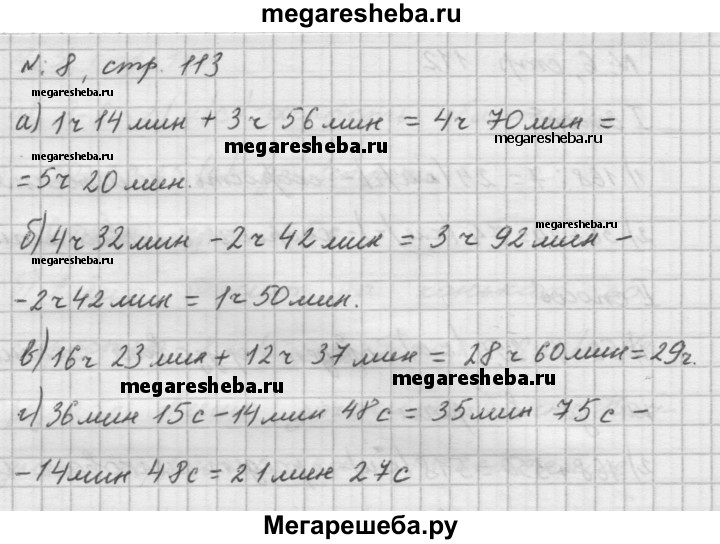 megaresheba.ru
№: 8, стр. 113
megaresheba.ru
а) 1ч 14мин + 3ч 56мин = 4ч 70мин =
megaresheba.ru
megaresheba.ru
megaresheba.ru
= 5ч 20 мин.
megaresheba.ru
б) 4ч 32мин - 2ч 42мин = 3ч 92мин -
megaresheba.ru
- 2ч 42мин = 1ч 50мин.
в) 16ч 23мин + 12ч 37мин = 28ч 60мин = 29ч.
megaresheba.ru
megaresheba.ru
г) 36мин 15с - 14мин 48с = 35мин 75с -
- 14мин 48с = 21мин 27с
Мегарешеба.ру